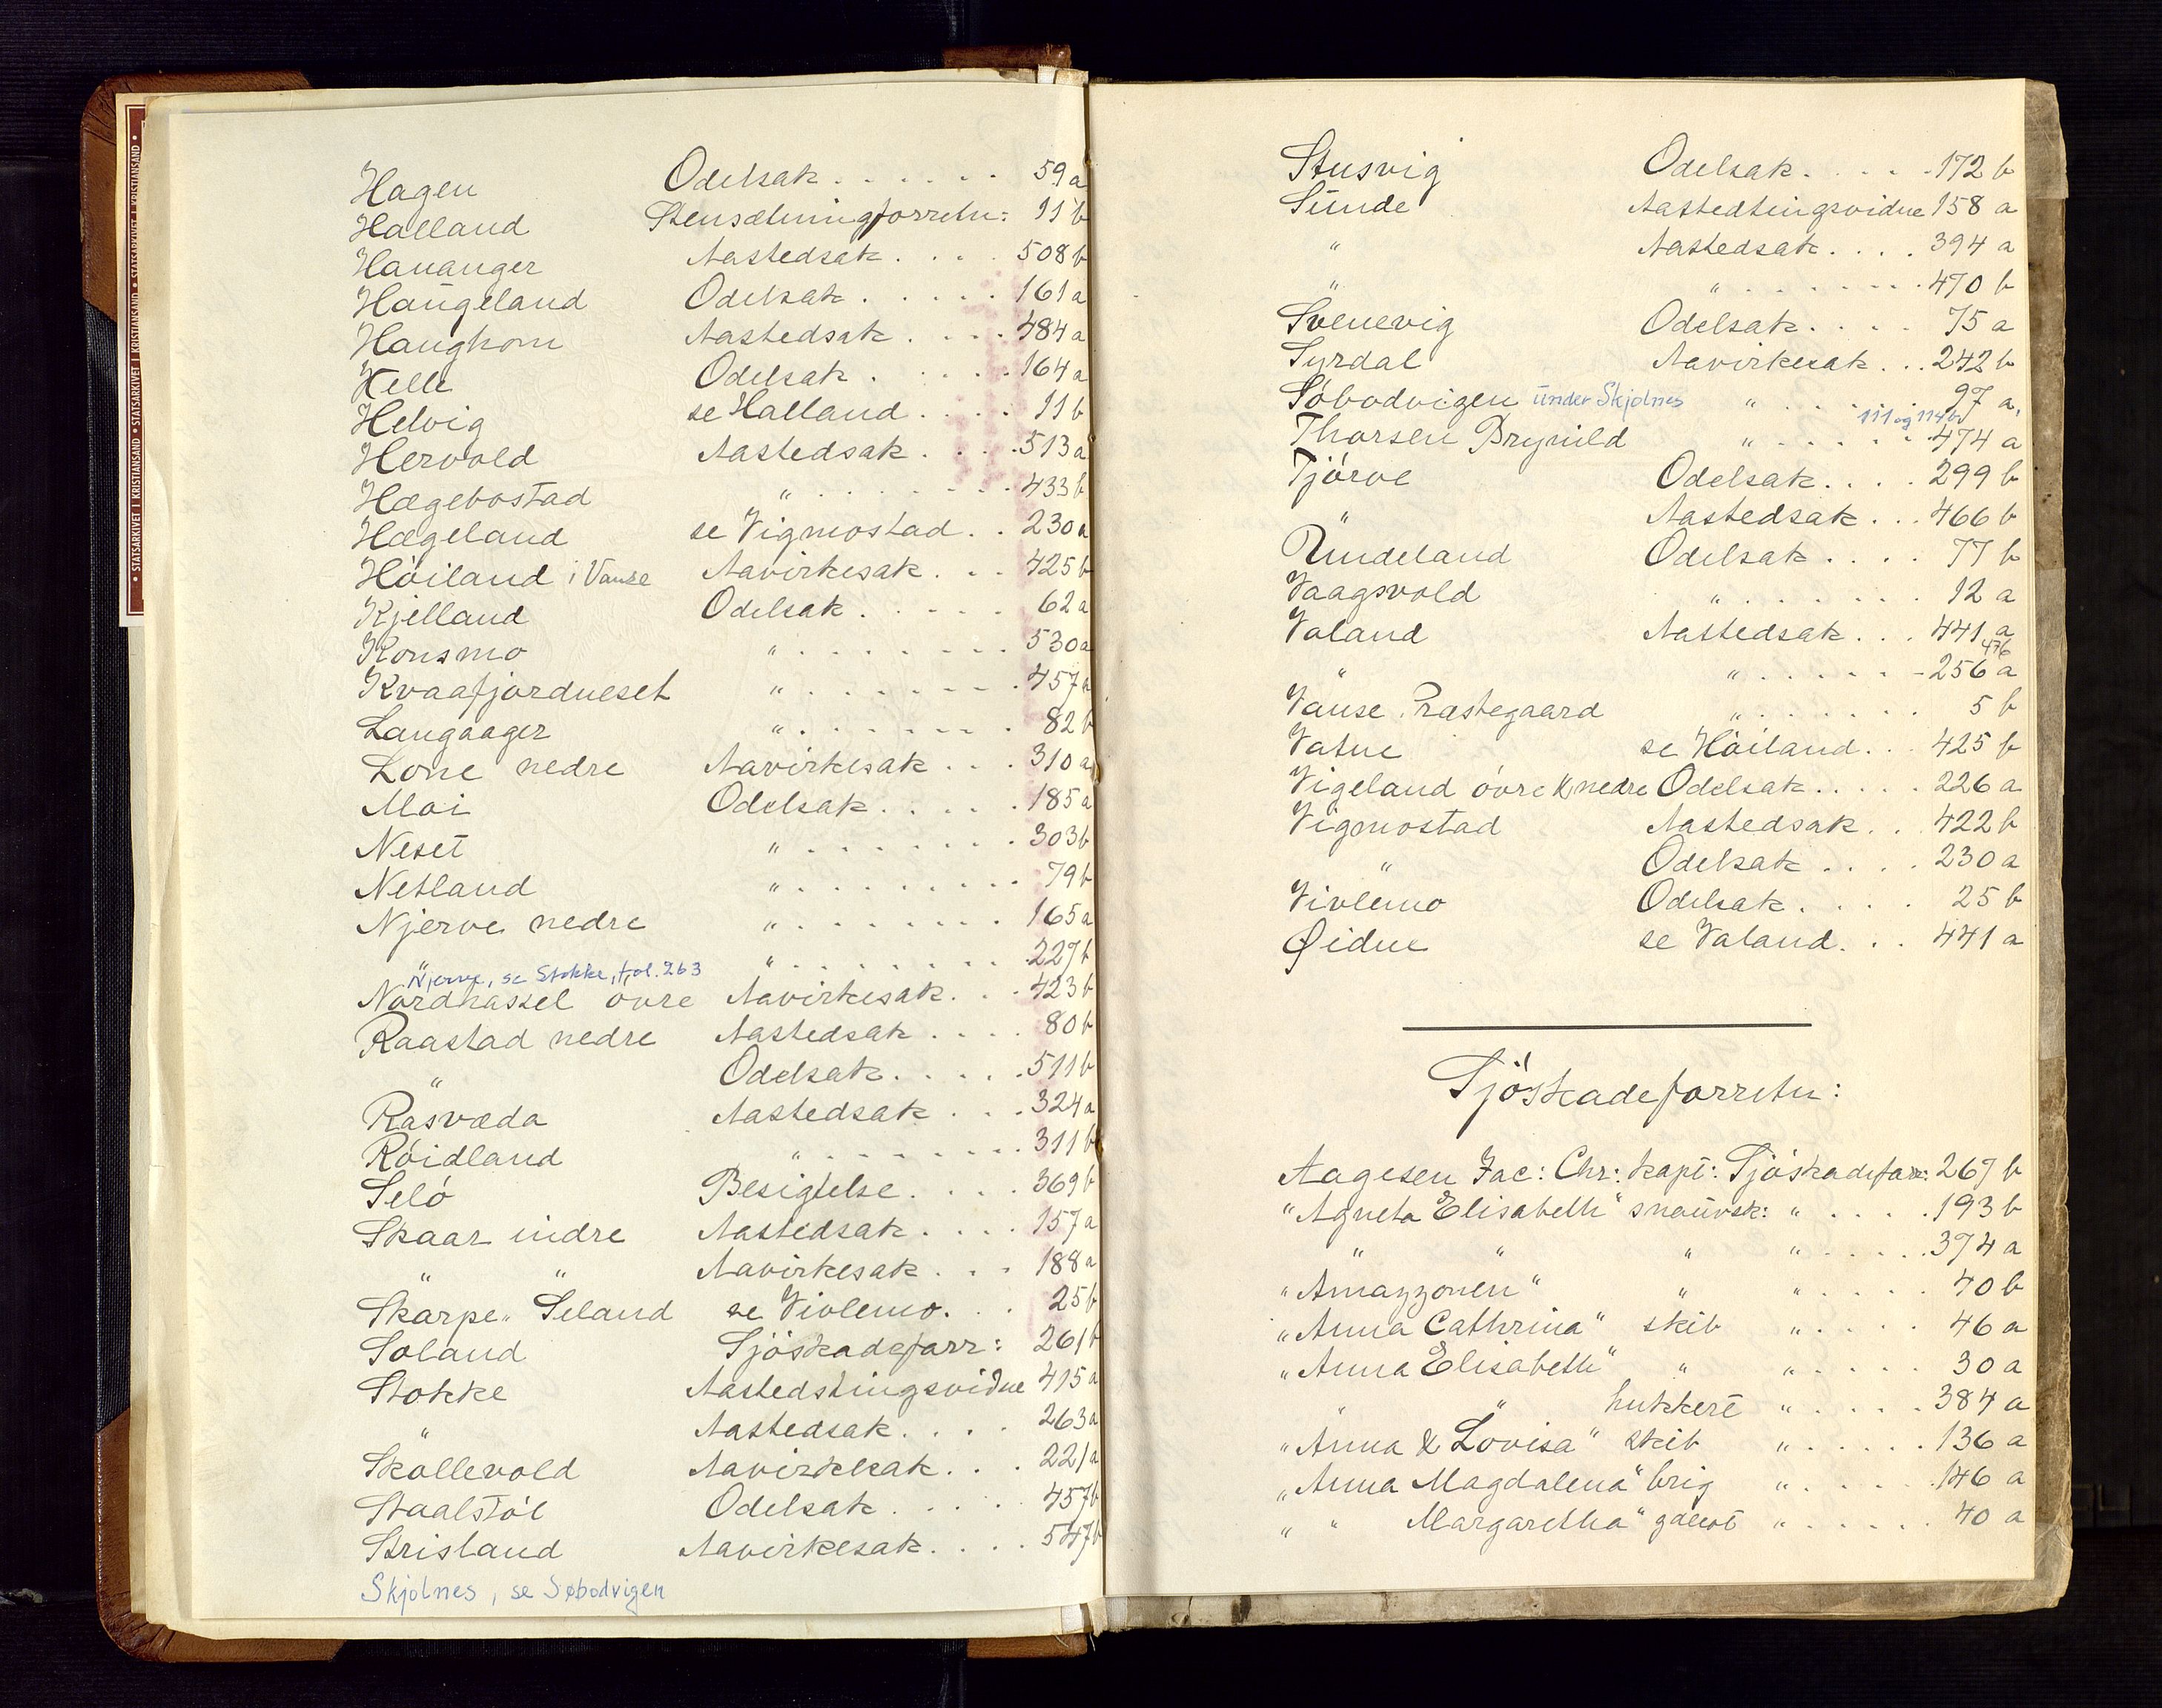 • STATSARKIVET I KRISTIANSAND • STATSARKIVET I KRISTIANSAND • STATSARKIVET I KRISTIANSAND •
Hagen Odelsak...... 59 a
Halland Stensætningforretn: 11 b
Hananger Aastedsak.... 508 b
Haugeland Odelsak..... 161 a
Haughom Aastedsak.... 484 a
Helle Odelsak..... 164 a
Helvig se Halland.... 11 b
Hervold Aastedsak.... 513 a
Hægebostad "........ 433 b
Hægeland se Vigmostad.. 230 a
Høiland i Vanse Aavirkesak... 425 b
Kjelland Odelsak..... 62 a
Konsmo "........ 530 a
Kvaafjordneset "........ 457 a
Langaager "....... 82 b
Lone nedre Aavirkesak... 310 a
Moi Odelsak..... 185 a
Neset "........ 303 b
Netland "......... 79 b
Njerve nedre "....... 165 a
" "......... 227 b
Njerve, se Stokke, fol. 263
Nordhassel øvre Aavirkesak... 423 b
Raastad nedre Aastedsak.... 80 b
" Odelsak..... 511 b
Rasvæda Aastedsak... 324 a
Røidland "........ 311 b
Selø Besigtelse.... 369 b
Skaar indre Aastedsak.... 157 a
" " Aavirkesak... 188 a
Skarpe- Seland se Vivlemo... 25 b
Soland Sjøskadeforr: 261 b
Stokke Aastedstingsvidne 415 a
" Aastedsak.... 263 a
Skollevold Aavirkesak... 221 a
Staalstøl Odelsak.... 457 b
Strisland Aavirkesak.... 547 b
Skjolnes, se Søbodvigen
Stusvig Odelsak..... 172 b
Sunde Aastedtingsvidne 158 a
" Aastedsak.... 394 a
" "........ 470 b
Svenevig Odelsak.... 75 a
Syrdal Aavirkesak... 242 b
Søbodvigen under Skjolnes "...... 97 a,
111 og 114 b
Thorsen Brynild "...... 474 a
Tjørve Odelsak.... 299 b
" Aastedsak... 466 b
Undeland Odelsak.... 77 b
Vaagsvold "....... 12 a
Valand Aastedsak... 441 a
476
" "...... 256 a
Vanse Præstegaard "....... 5 b
Vatne se Høiland... 425 b
Vigeland øvre & nedre Odelsak..... 226 a
Vigmostad Aastedsak.. 422 b
" Odelsak.... 230 a
Vivlemo Odelsak.... 25 b
Øidne se Valand... 441 a
Sjøskadeforretn:
Aagesen Jac: Chr: kapt: Sjøskadeforr: 267 b
"Agneta Elisabeth" snauvsk: "..... 193 b
" " " "...... 374 a
"Amazzonen" " "..... 40 b
"Anna Cathrina" skib "..... 46 a
"Anna Elisabeth" " "..... 30 a
" " hukkert "..... 384 a
"Anna & Lovisa" skib "...... 136 a
"Anna Magdalena" brig "...... 146 a
" " Margaretha" galeot "...... 40 a